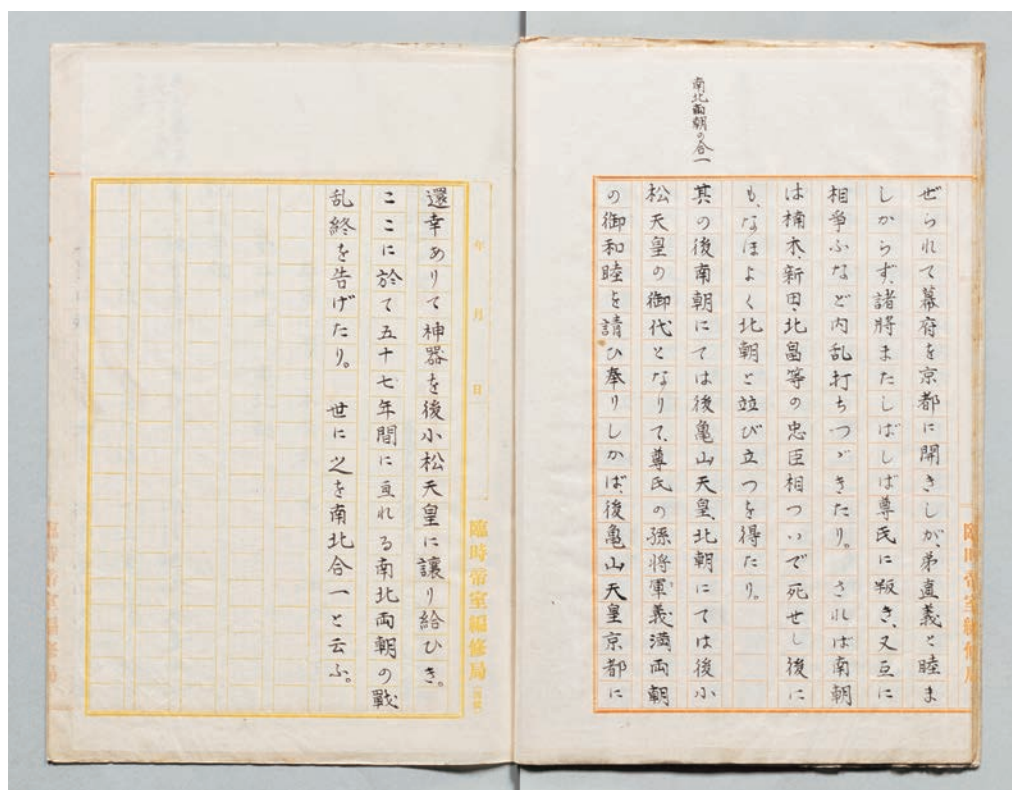 南北両朝の合一
ぜられて幕府を京都に開きしが、弟直義と睦ま
しからず、諸将またしばしば尊氏に叛き、又互に
相争ふなど内乱打ちつゞきたり。されば南朝
は楠木、新田、北畠等の忠臣相ついで死せし後に
も、なほよく北朝と並び立つを得たり。
其の後南朝にては後亀山天皇、北朝にては後小
松天皇の御代となりて、尊氏の孫将軍義満両朝
の御和睦を請ひ奉りしかば、後亀山天皇京都に
臨時帝室編修局
年月日
還幸ありて神器を後小松天皇に讓り給ひき。
ここに於て五十七年間に亘れる南北両朝の戰
乱終を告げたり。世に之を南北合一と云ふ。
臨時帝室編修局